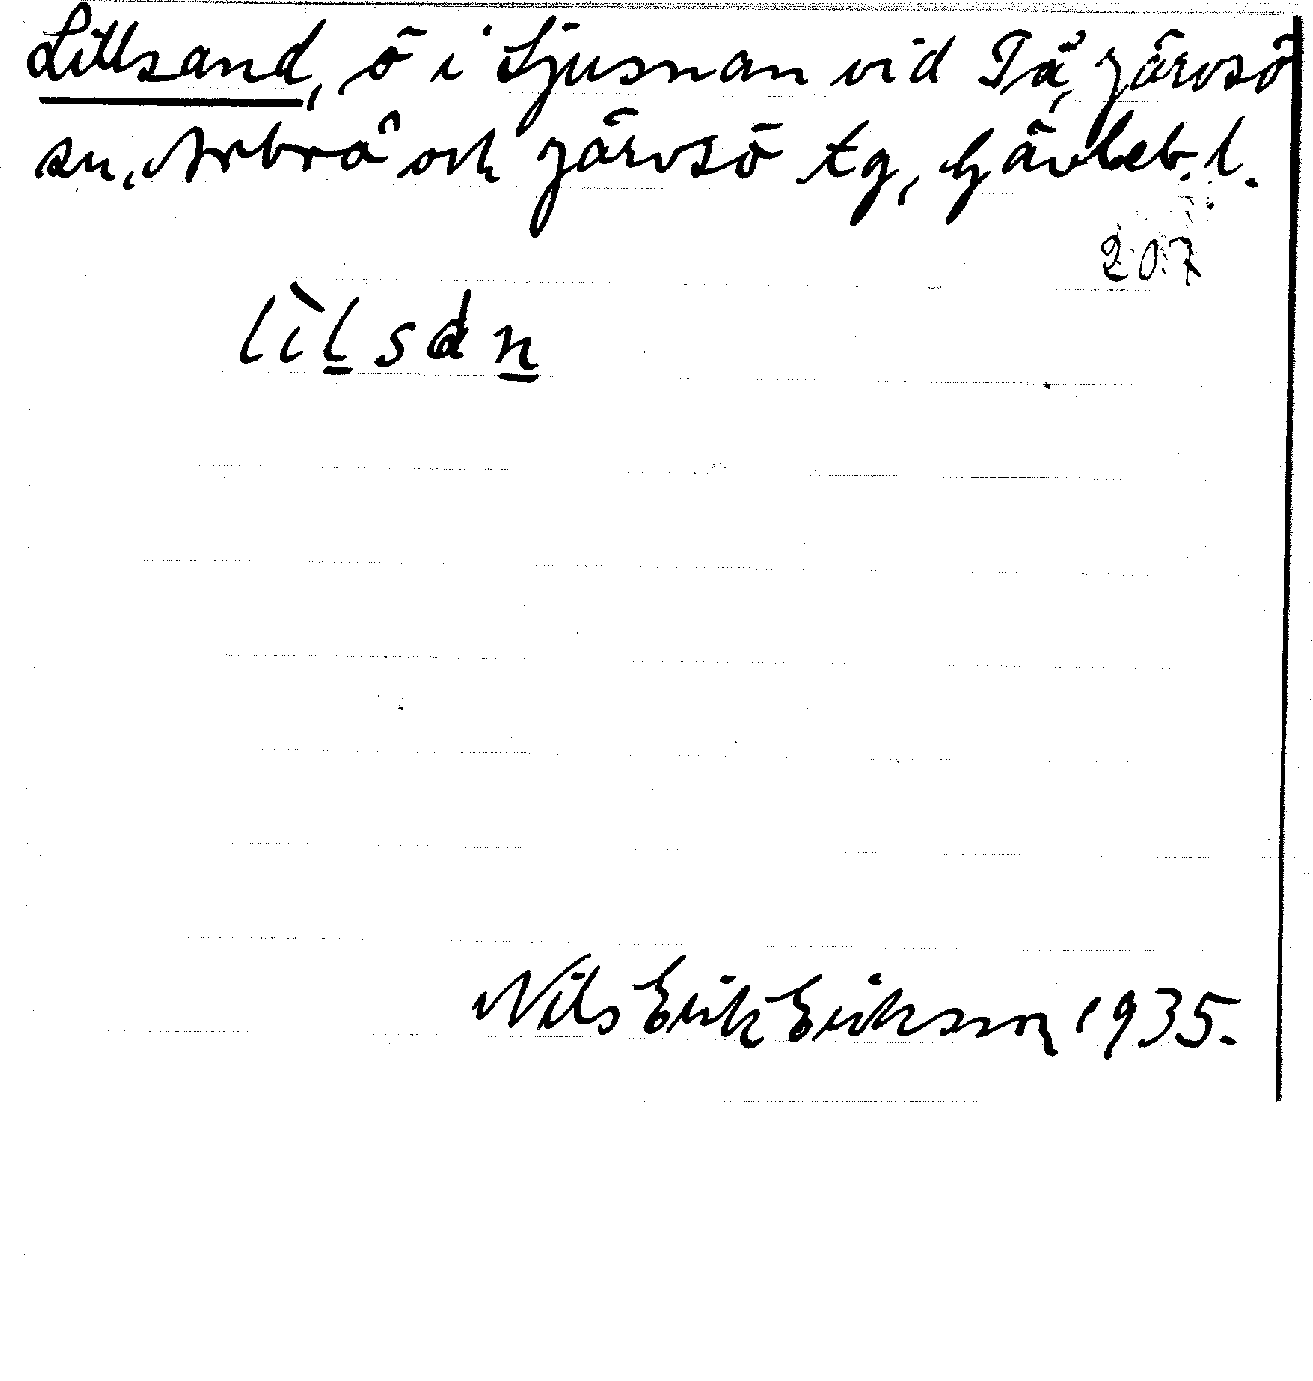 Lillsand, ö i Ljusnan vid Tå, Järvsö
sn, Arbrå och Järvsö tg, Gävleb. l.
207
lìl̲sdn̲
Nils Erik Eriksson 1935.